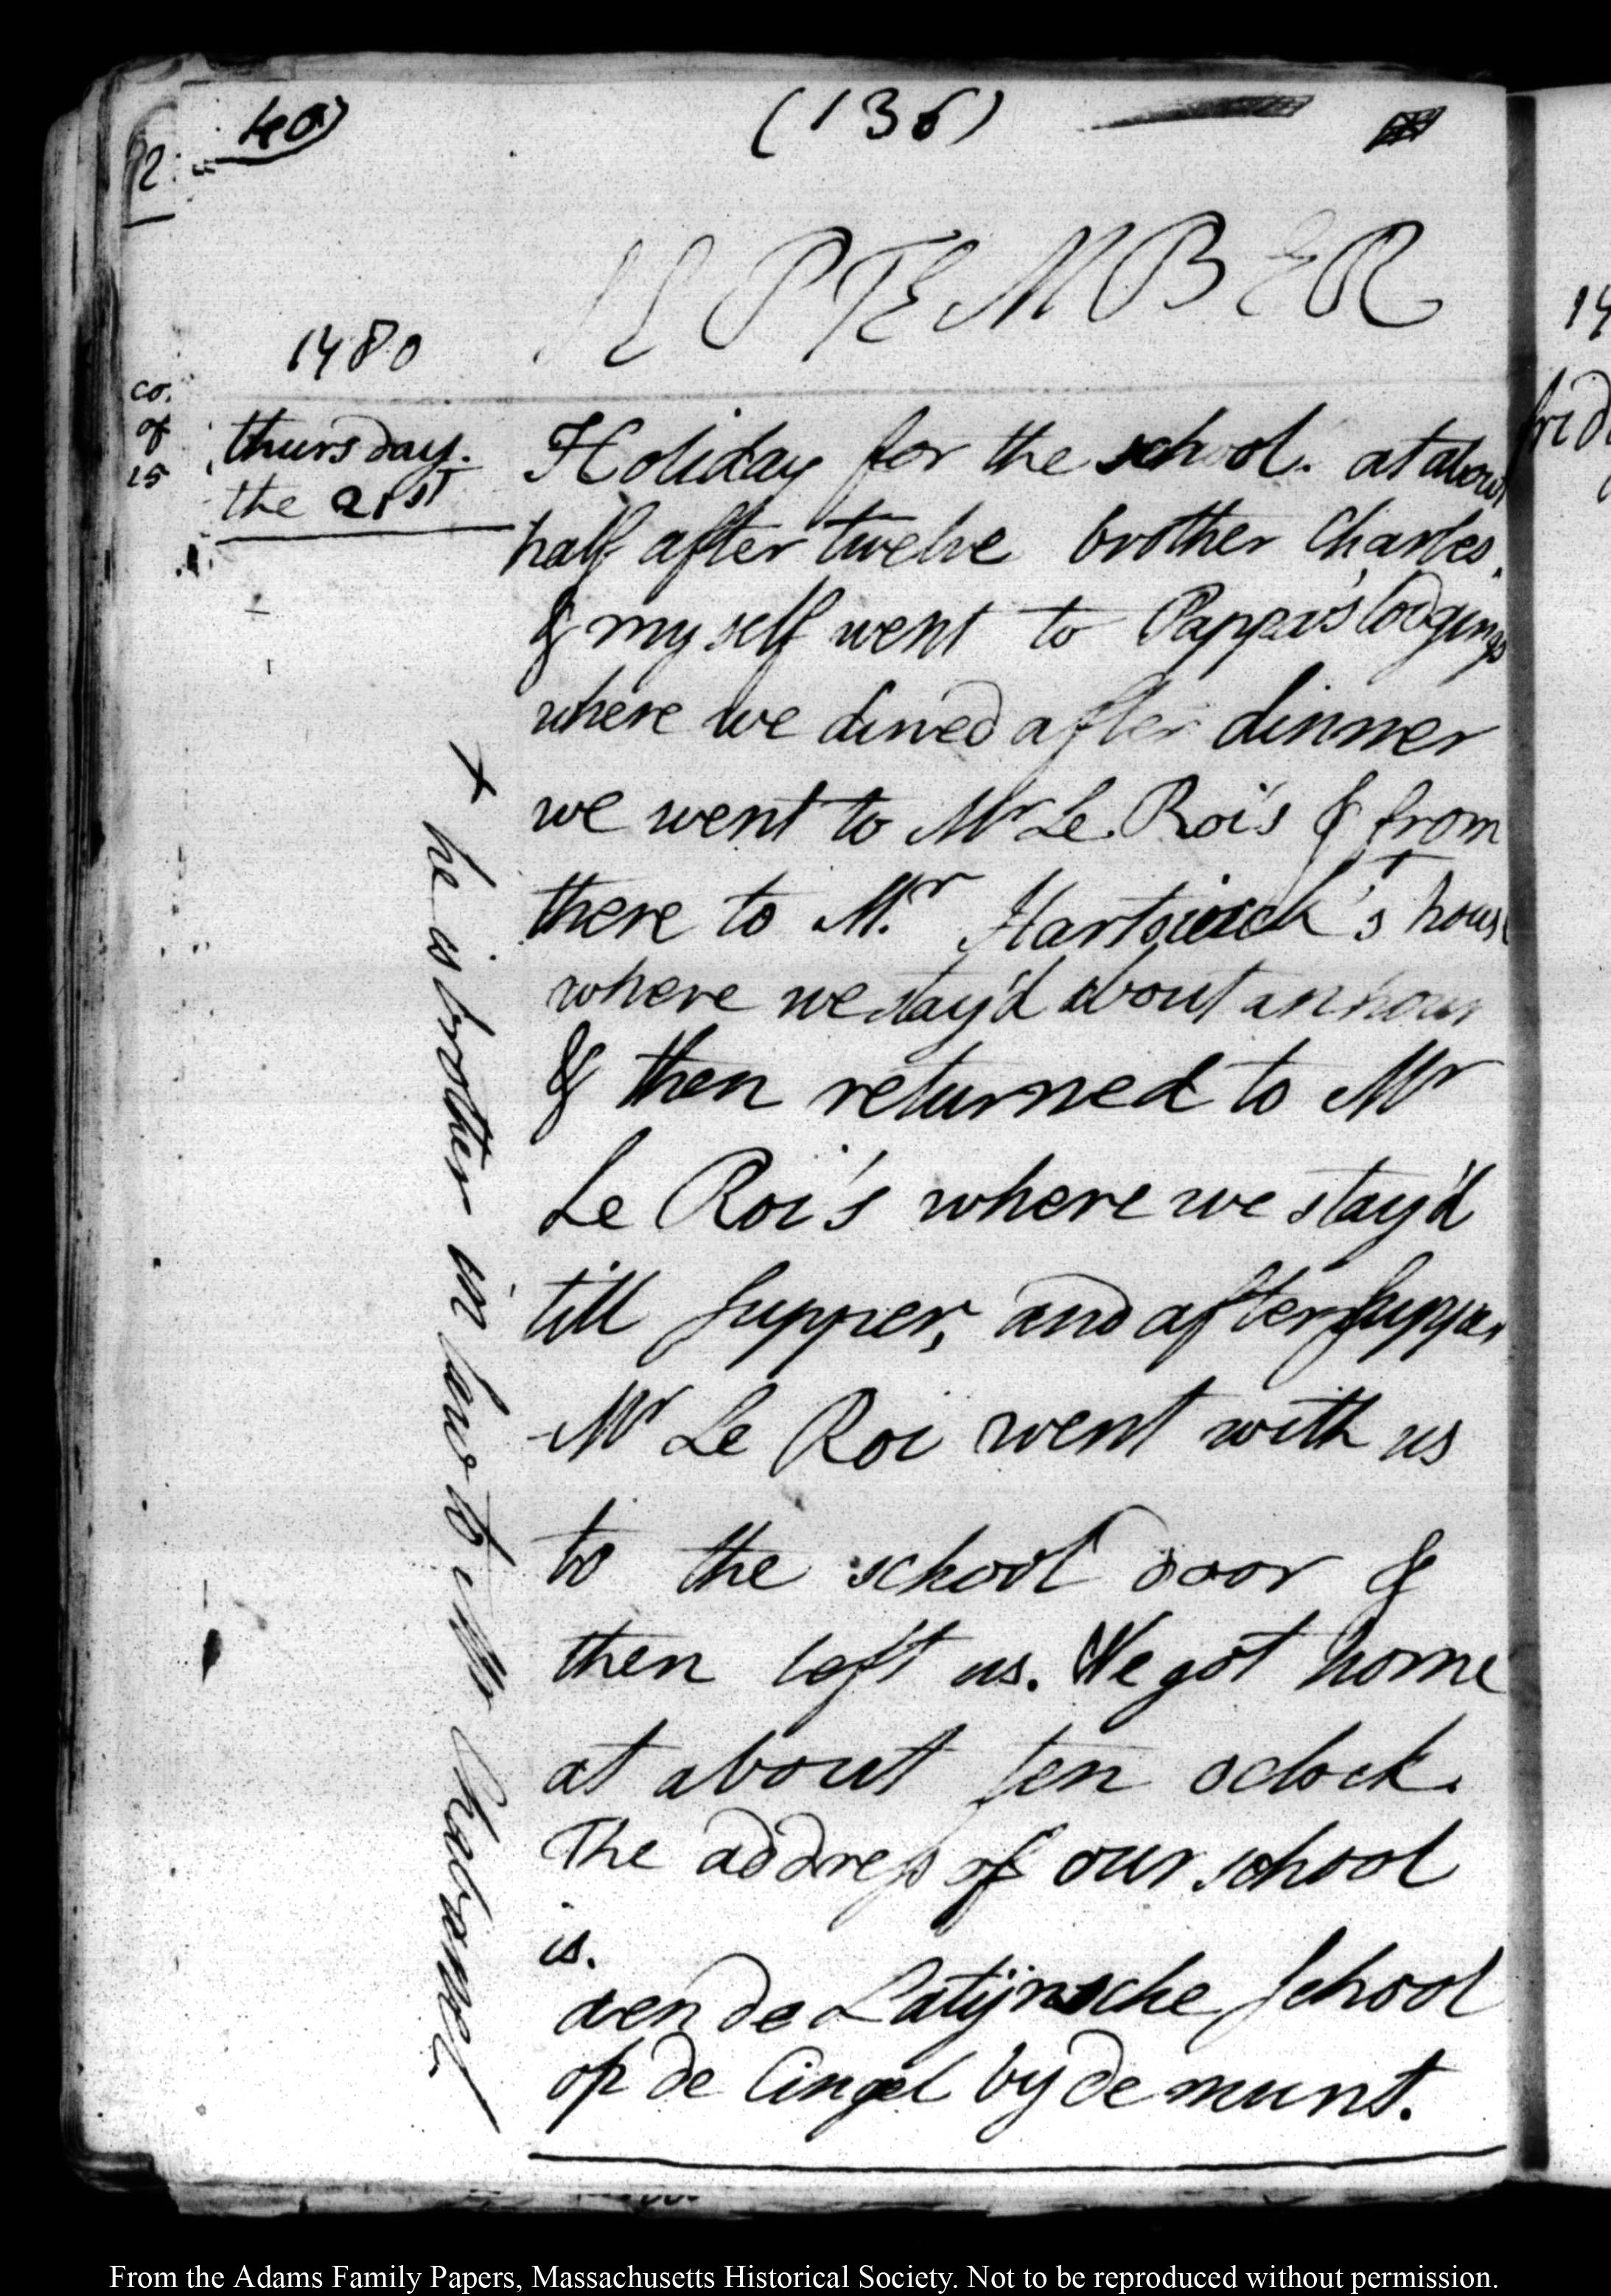 40)
(136)
SEPTEMBER
1780
thursday.
the 21st
Holiday for the school. at about
half after twelve brother Charles.
& myself went to Pappa's lodgings
where we dined after dinner
we went to Mr Le Roi's & from
there to Mr. Hartswick +'s house
where we stay'd about an hour
& then returned to Mr
Le Roi's where we stay'd
till supper, and after supper
Mr Le Roi went with us
to the school door &
then left us. We got home
at about ten oclock.
The address of our school
is.
aen de Latijnsche School
op de Cingel by de munt.
+ he is brother in law to Mr Chabanel
co.
of
15
From the Adams Family Papers, Massachusetts Historical Society. Not to be reproduced without permission.